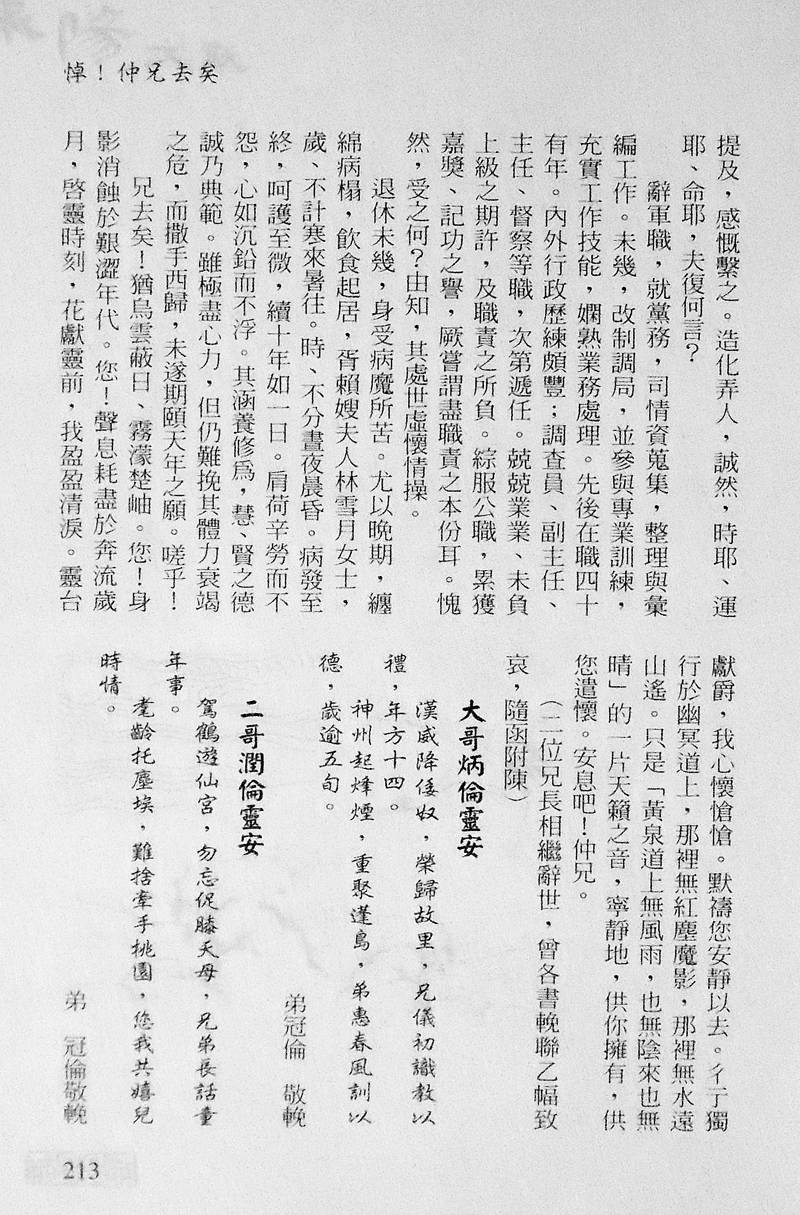 悼！仲兄去矣
提及，感慨繫之。造化弄人，誠然，時耶、運
耶、命耶，夫復何言？
辭軍職，就黨務，司情資蒐集，整理與彙
編工作。未幾，改制調局，並參與專業訓練，
充實工作技能，嫻熟業務處理。先後在職四十
有年。內外行政歷練頗豐；調查員、副主任、
主任、督察等職，次第遞任。兢兢業業、未負
上級之期許，及職責之所負。綜服公職，累獲
嘉獎、記功之譽，厥嘗謂盡職責之本份耳。愧
然，受之何？由知，其處世虛懷情操。
退休未幾，身受病魔所苦。尤以晚期，纏
綿病榻，飲食起居，胥賴嫂夫人林雪月女士，
歲、不計寒來暑往。時、不分晝夜晨昏。病發至
終，呵護至微，續十年如一日。肩荷辛勞而不
怨，心如沉鉛而不浮。其涵養修為，慧、賢之德
誠乃典範。雖極盡心力，但仍難挽其體力衰竭
之危，而撒手西歸，未遂期頤天年之願。嗟乎！
兄去矣！猶烏雲蔽日、霧濛楚岫。您！身
影消蝕於艱澀年代。您！聲息耗盡於奔流歲
月，啓靈時刻，花獻靈前，我盈盈清淚。靈台
獻爵，我心懷愴愴。默禱您安靜以去。彳亍獨
行於幽冥道上，那裡無紅塵魔影，那裡無水遠
山遙。只是「黃泉道上無風雨，也無陰來也無
晴」的一片天籟之音，寧靜地，供你擁有，供
您遣懷。安息吧！仲兄。
（二位兄長相繼辭世，曾各書輓聯乙幅致
哀，隨函附陳）
大哥炳倫靈安
漢威降倭奴，榮歸故里，兄儀初識教以
禮，年方十四。
神州起烽煙，重聚蓬島，弟惠春風訓以
德，歲逾五旬。
弟冠倫　敬輓
二哥潤倫靈安
駕鶴遊仙宮，勿忘促膝天母，兄弟長話童
年事。
耄齡托塵埃，難捨牽手桃園，您我共嬉兒
時情。
弟　冠倫敬輓
213